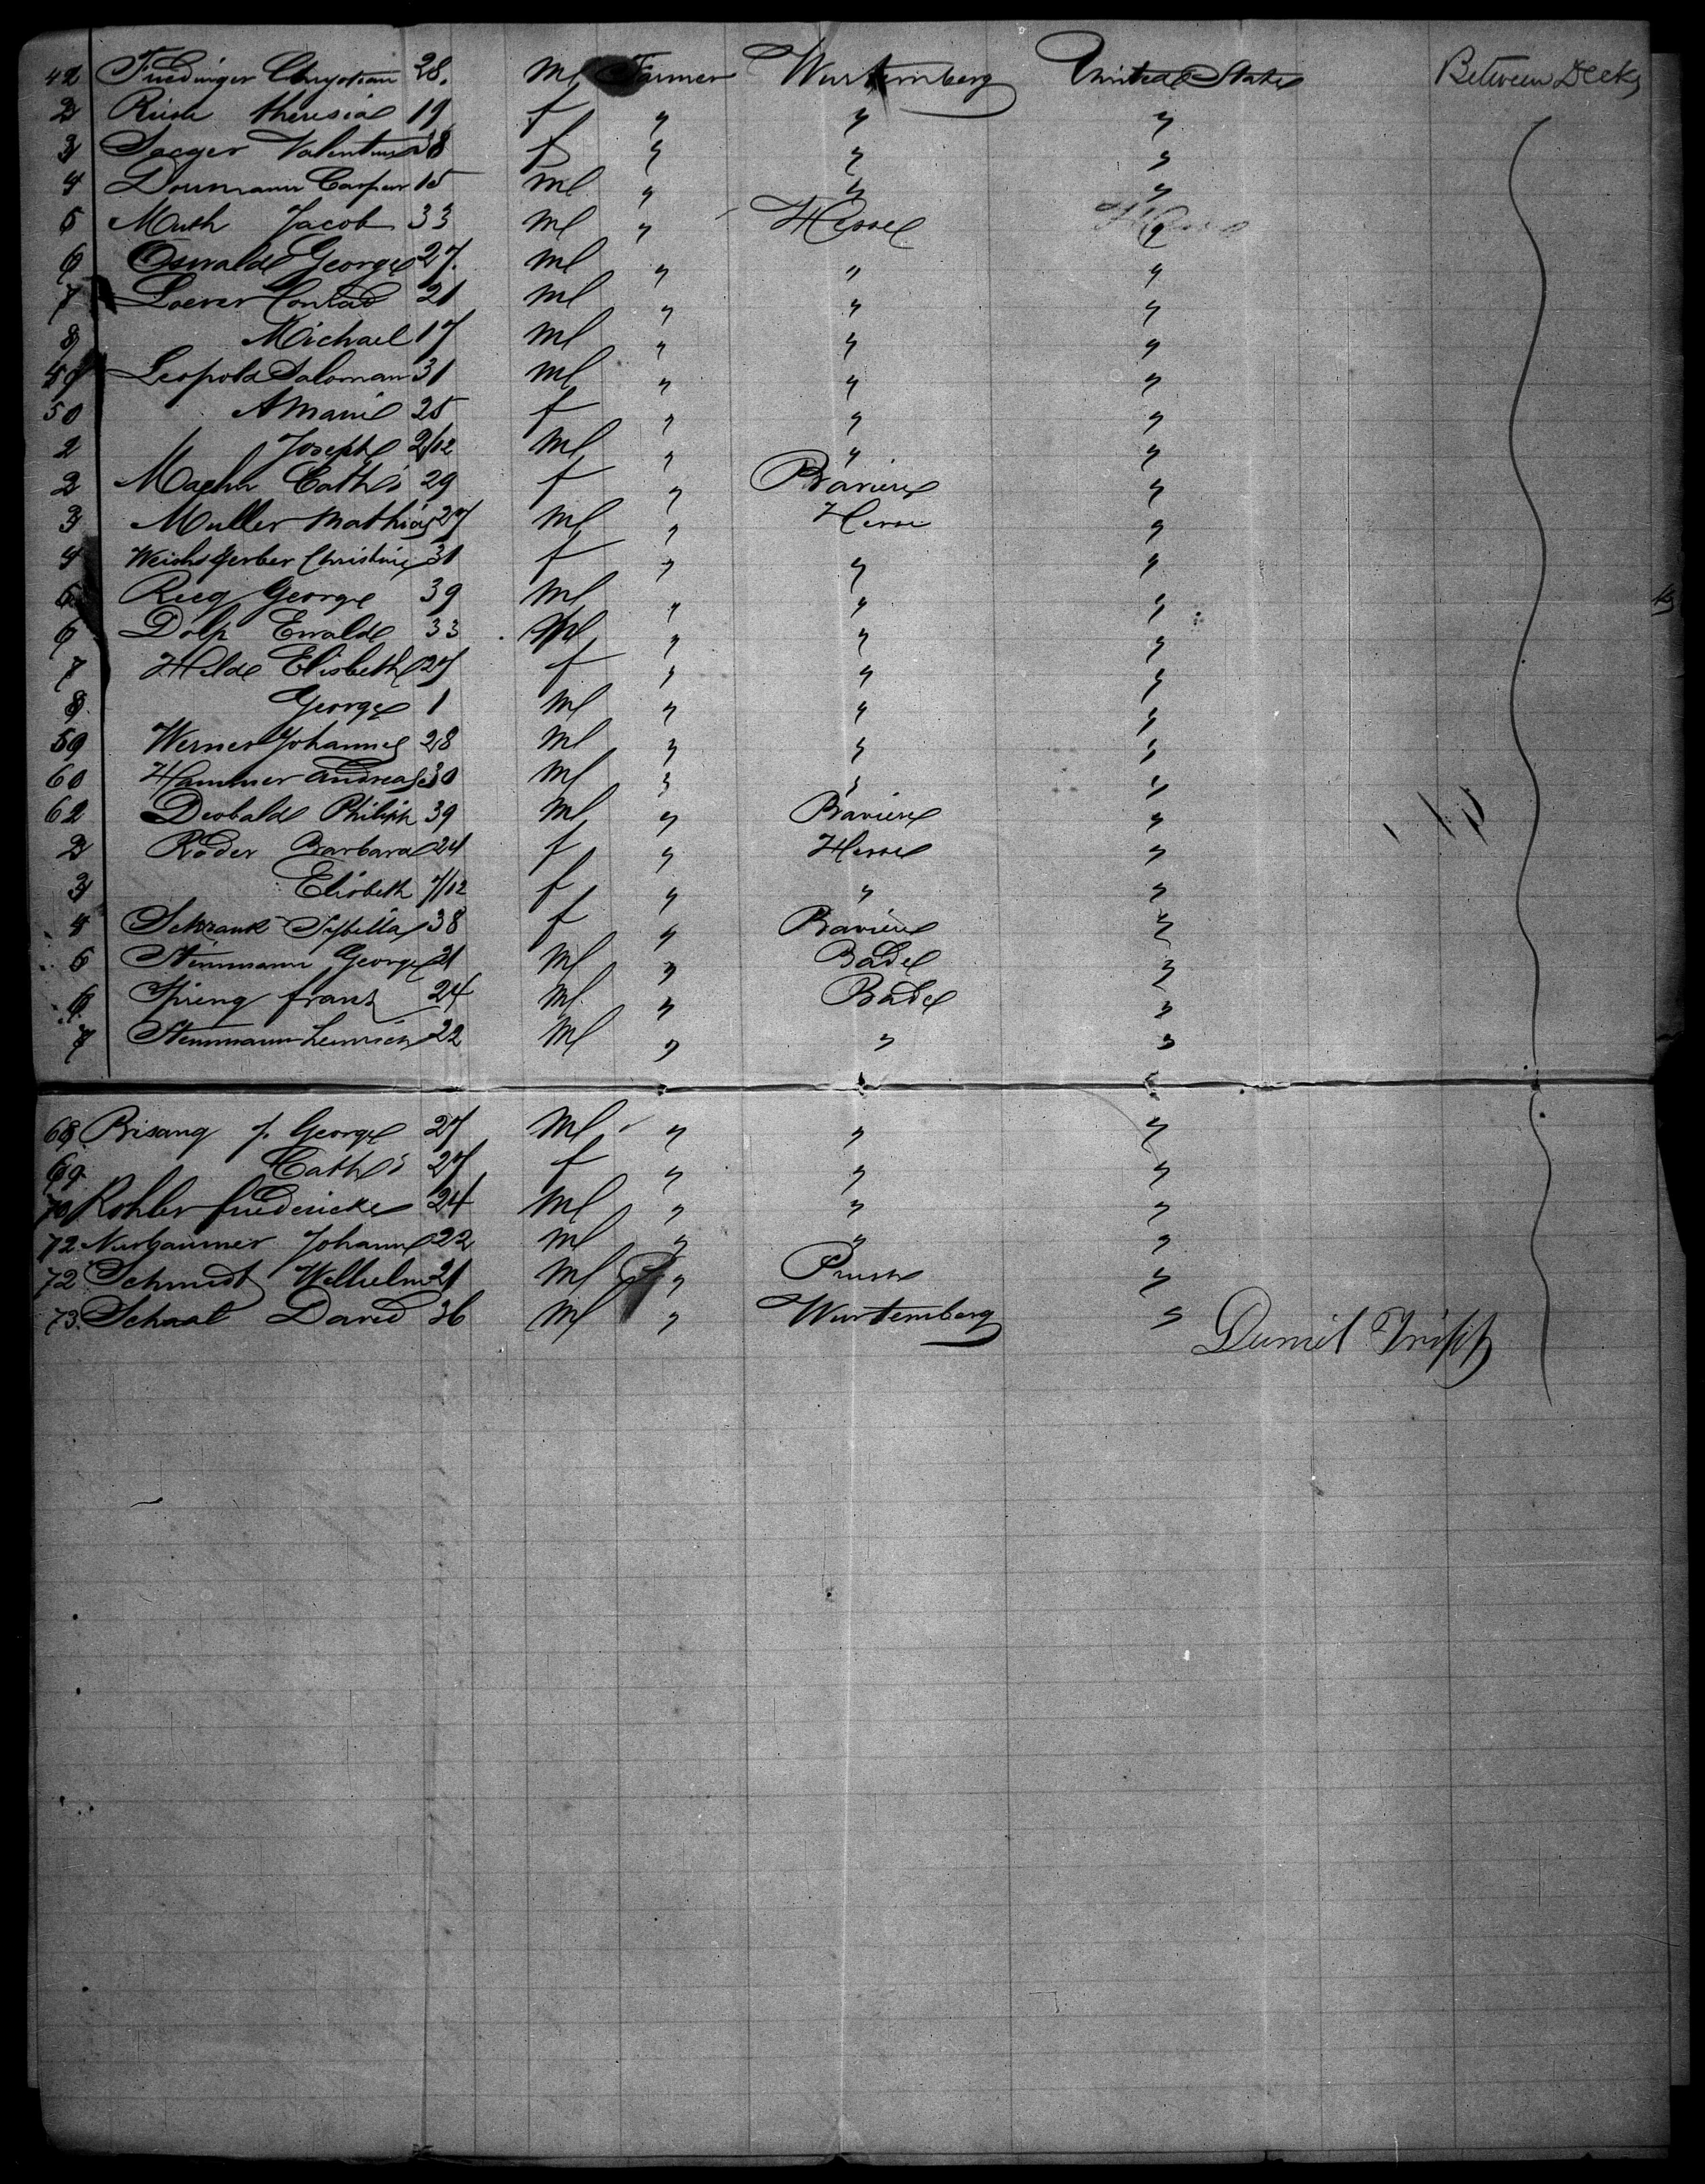 42 Friedinger Chrystian 28. Ml Farmer Wurtemberg United States Between Decks
2 Rush theresia 19 f " " "
3 Jaeger Valentin 38 f " " "
4 Dormann Caspar 15 Ml " " "
5 Muth Jacob 33 Ml " Hesse "
6 Oswald George 27. Ml " " "
7 Loever Conrad 21 Ml " " "
8 Michael 17 Ml " " "
49 Leopold Saloman 31 Ml " " "
50 Amanie 25 f " " "
2 Joseph 2/12 Ml " " "
2 Cath's 29 f " Baviere "
3 Muller Mathias 27 Ml " Hesse "
4 Weichsgerber Christine 31 f " " "
5 George 39 Ml " " "
6 Dolp Ewald 33 Ml " " "
7 Hilde Elisbeth 27 f " " "
8 George 1 Ml " " "
59 Werner Johannes 28 Ml " " "
60 Hammer Andreas 30 Ml " " "
62 Deobald Philiph 39 Ml " Baviere "
2 Röder Barbara 24 f " Hesse "
3 Elisbeth 7/12 f " " "
4 Schrank Sibilla 38 f " Baviere "
5 Stemmann George 21 Ml " Bade "
6 Spring franz 24 Ml " Bade "
7 Stemmann heinrich 22 Ml " " "
68 Bisang f. George 27 Ml " " "
69 Cath's 27 f " " "
70 Kohler friedericke 24 Ml " " "
72 Nusbaumer Johann 22 Ml " " "
72 Schmidt Wilhelm 21 Ml " Prusse "
73. Schaal David 36 Ml " Wurtemberg "
Daniel Tripp